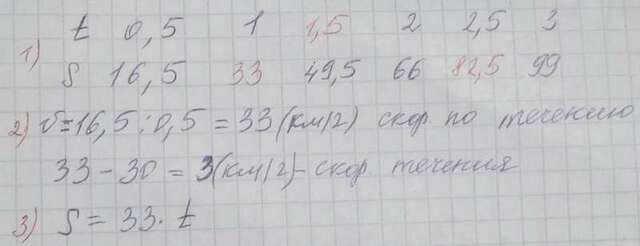 t 0,5 1 1,5 2 2,5 3
1)
S 16,5 33 49,5 66 82,5 99
2) v=16,5:0,5=33(км/г) скор по течению
33-30=3(км/г)-скор течения
3) S=33·t